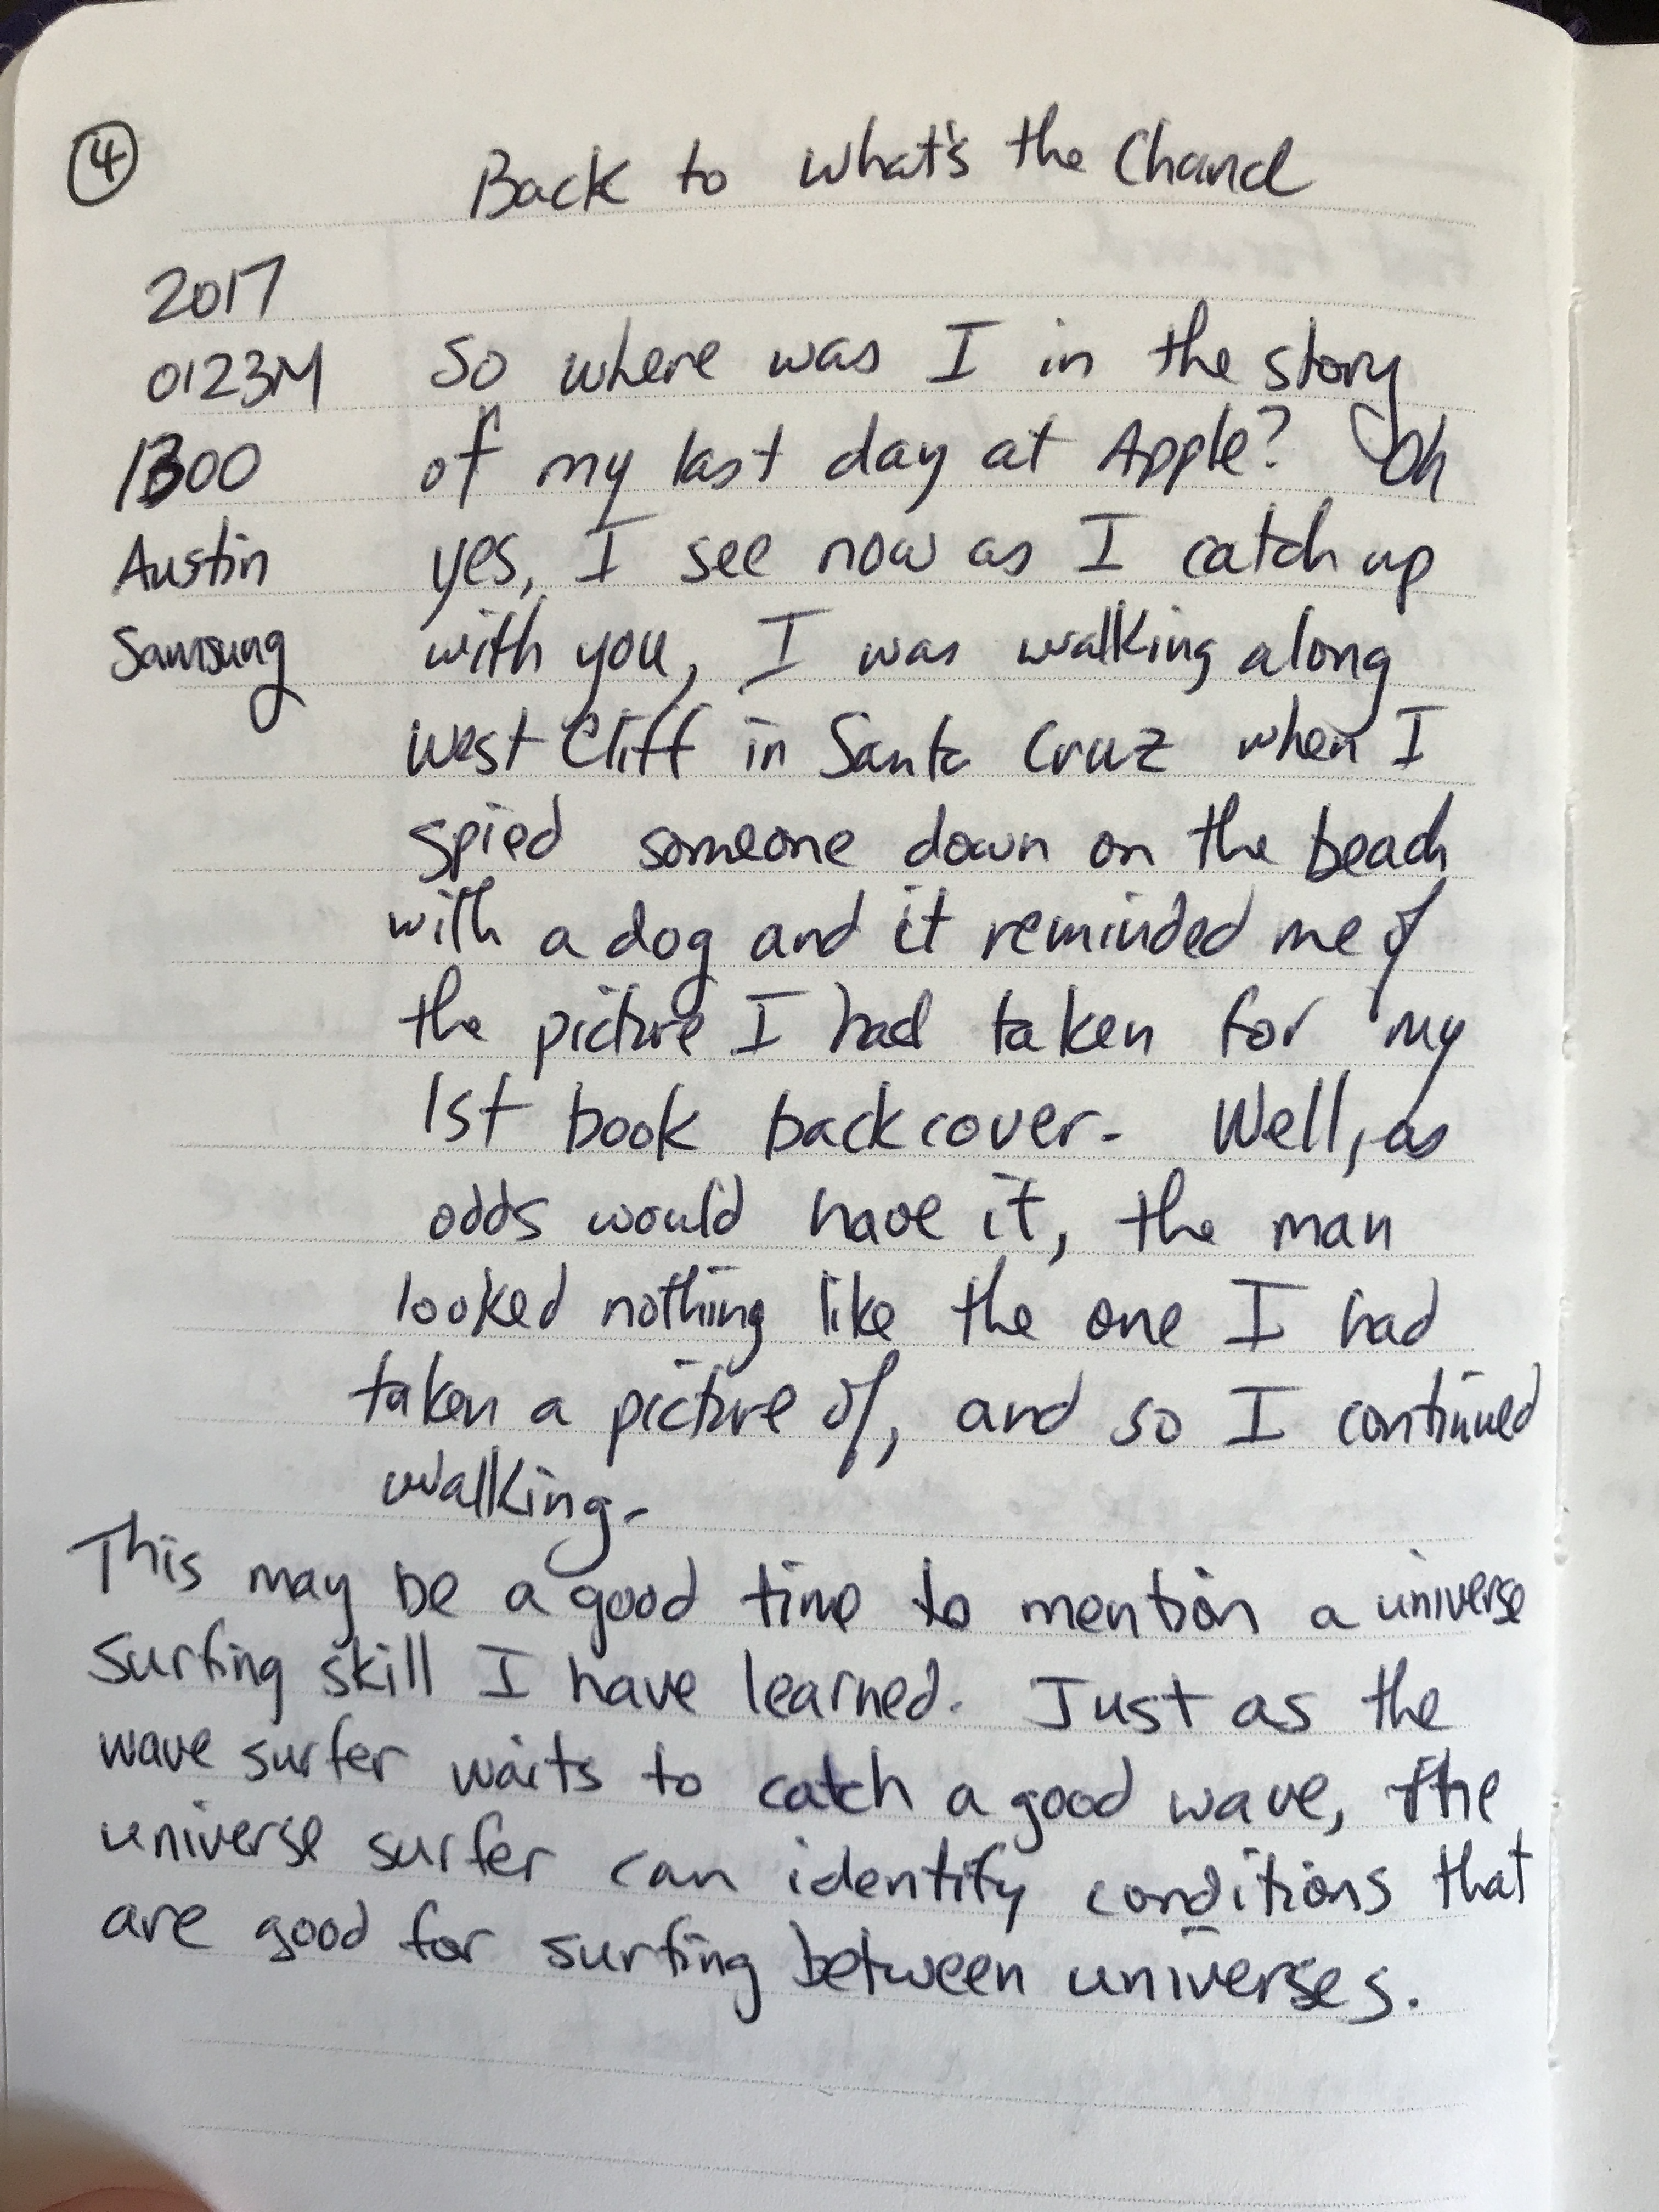 ④
Back to what's the Chancl
2017
0123M
1300
Austin
Samsung
So where was I in the story
of my last day at Apple? Oh
yes, I see now as I catch up
with you, I was walking along
West Cliff in Santa Cruz when I
spied someone down on the beach
with a dog and it reminded me of
the picture I had taken for my
1st book back cover. Well, as
odds would have it, the man
looked nothing like the one I had
taken a picture of, and so I continued
walking.
This may be a good time to mention a universe
surfing skill I have learned. Just as the
wave surfer waits to catch a good wave, the
universe surfer can identify conditions that
are good for surfing between universes.